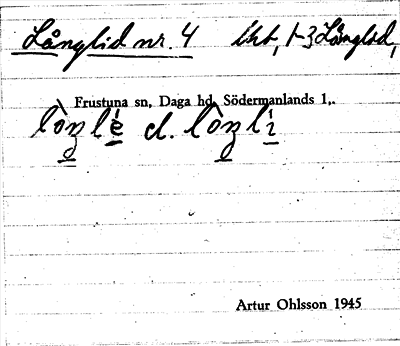 Långlid nr. 4 Utt, 1-3 Långlid,
Frustuna sn, Daga hd, Södermanlands l,.
lòŋle̊ el. lòŋlì
Artur Ohlsson 1945